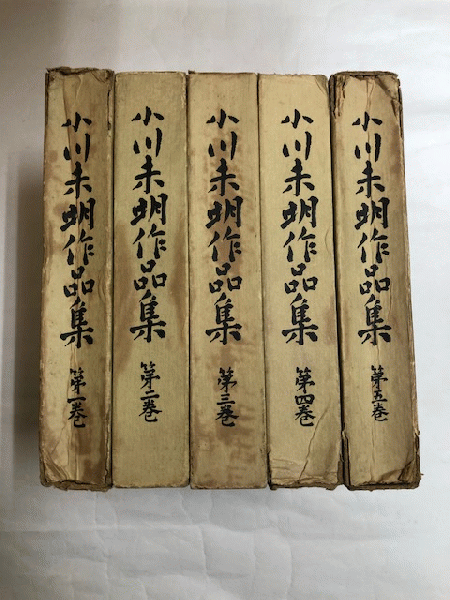 小川未明作品集 第一巻
小川未明作品集 第二巻
小川未明作品集 第三巻
小川未明作品集 第四巻
小川未明作品集 第五巻